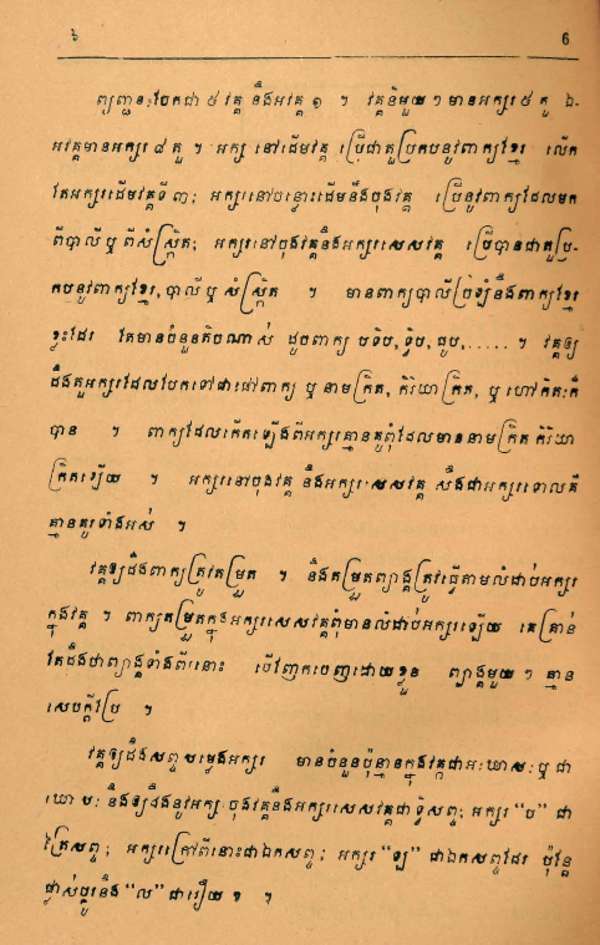 ៦ 6
ព្យញ្ជនៈបែកជា ៥ វគ្គ និងអវគ្គ ១ ។ វគ្គនិមួយ ៗ មានអក្សរ ៥ តួ ឯ-
អវគ្គមានអក្សរ ៨ តួ ។ អក្ស នៅដើមវគ្គ ប្រើជាតួប្រកបនូវពាក្យខ្មែរ លើក
តែអក្សរដើមវគ្គទី ៣; អក្សរនៅចន្លោះដើមនឹងចុងវគ្គ ប្រើនូវពាក្យដែលមក
ពីបាលីឬ ពីសំស្ក្រិត; អក្សរនៅចុងវគ្គនិងអក្សរសេសវគ្គ ប្រើបានជាតួប្រ-
កបនូវពាក្យខ្មែរ, បាលីឬ សំស្ក្រិត ។ មានពាក្យបាលីច្រឡំនឹងពាក្យខ្មែរ
ខ្លះដែរ តែមានចំនួនតិចណាស់ ដូចពាក្យ បទិប, ទ្វិប, ធូប, ..... ។ វគ្គឲ្យ
ដឹងតួអក្សរដែលបែកទៅជាធៅពាក្យ ឬ នាមក្រិត, កិរិយាក្រិត, ឬ ហៅកិតៈក៏
បាន ។ ពាក្យដែលកើតឡើងពីអក្សរគ្មានគូពុំដែលមាននាមក្រិត កិរិយា
ក្រិតឡើយ ។ អក្សរនៅចុងវគ្គ និងអក្សរសេសវគ្គ សឹងជាអក្សរទោលគឺ
គ្មានគូរទាំងអស់ ។
វគ្គឲ្យដឹងពាក្យត្រូវតម្រួត ។ និងតម្រួតព្យាង្គត្រូវធ្វើតាមលំដាប់អក្សរ
ក្នុងវគ្គ ។ ពាក្យតម្រួតក្នុងអក្សរសេសវគ្គពុំមានលំដាប់អក្សរឡើយ គេគ្រាន់
តែដឹងថាព្យាង្គទាំងពីរនោះ បើញែកចេញដោយខ្លួន ព្យាង្គមួយ ៗ គ្មាន
សេចក្ដីប្រែ ។
វគ្គឲ្យដឹងសព្ទសម្លេងអក្សរ មានចំនួនប៉ុន្មានក្នុងវគ្គជាអៈឃោសៈឬ ជា
ឃោសៈ និងឲ្យដឹងនូវអក្សរចុងវគ្គនិងអក្សរសេសវគ្គជាទ្វិសព្ទ; អក្សរ “ប” ជា
ត្រៃសព្ទ; អក្សរក្រៅពីនោះជាឯកសព្ទ; អក្សរ “ឡ” ជាឯកសព្ទដែរ ប៉ុន្តែ
ផ្លាស់ប្ដូរនិង “ល” ជារឿយ ៗ ។